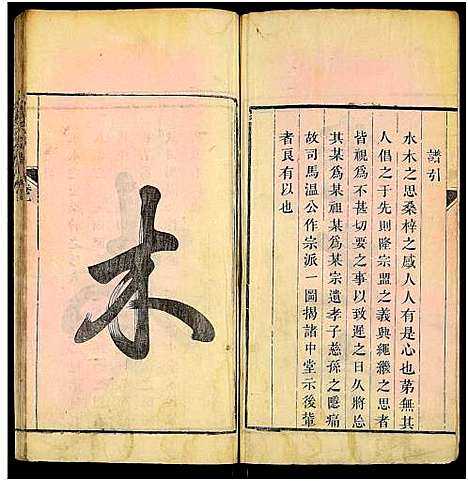 譜引
水木之思桑梓之感人人有是心也第無其
人倡之于先則隆宗盟之義與繩繼之思者
皆視爲不甚切要之事以致遲之日久將忩
其某爲某祖某爲某宗遺孝子慈孫之隱痛
故司馬溫公作宗派一圖揭諸中堂示後輩
者良有以也
木